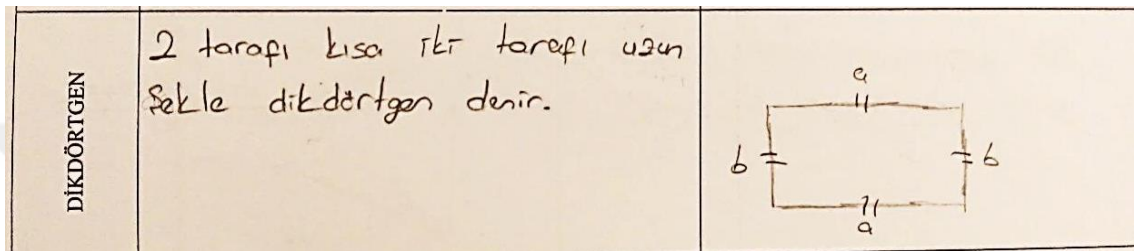 DİKDÖRTGEN
2 tarafı kısa iki tarafı uzun
Şekle dikdörtgen denir.
a
b
b
a